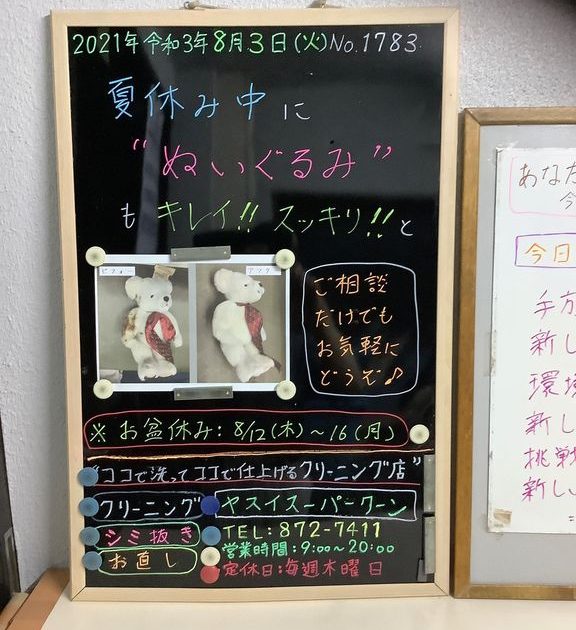 2021年令和3年8月3日(火)No.1783
夏休み中に
"ぬいぐるみ"
もキレイ!!スッキリ!!と
ビフォー
アフター
ご相談
だけでも
お気軽に
どうぞ♪
※お盆休み:8/12(木)～16(月)
"ココで洗ってココで仕上げるクリーニング店"
クリーニング
シミ抜き
お直し
ヤスイスーパークーン
TEL:872-7411
営業時間:9:00～20:00
定休日:毎週木曜日
あなた
今
今日
手方
新し
環境
新し
挑戦
新しい